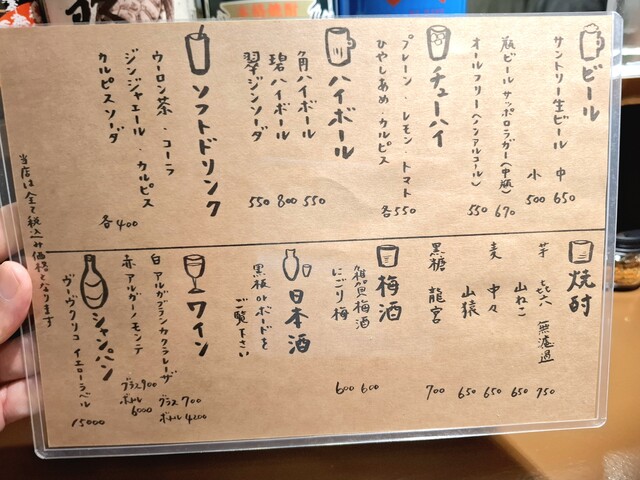 ビール
サントリー生ビール 中 650
小 500
瓶ビール サッポロラガー(中瓶) 670
オールフリー(ノンアルコール) 550
チューハイ
プレーン・レモン トマト
ひやしあめ・カルピス
各550
ハイボール
角ハイボール 550
碧ハイボール 800
翠ジンソーダ 550
ソフトドリンク
ウーロン茶・コーラ
ジンジャエール・カルピス
カルピスソーダ
各400
当店は全て税込み価格となります
焼酎
芋 㐂六 無濾過 750
山ねこ 650
麦 中々 650
山猿 650
黒糖 龍宮 700
梅酒
雑賀梅酒 600
にごり梅 600
日本酒
黒板orボードを
ご覧下さい
ワイン
白 アルガブランカクラレーザ
グラス 700
ボトル 4200
赤 アルガーノモンテ
グラス 900
ボトル 6000
シャンパン
ヴーヴクリコ イエローラベル 15000